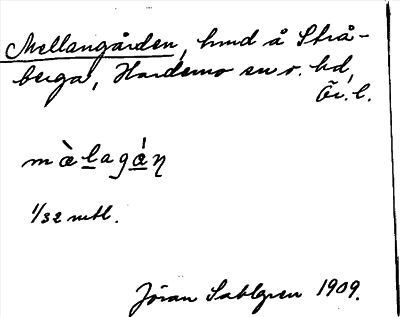 Mellangården, hmd å Strå-
berga, Hardemo sn o. hd,
Ör. l.
màlagán
1/32 mtl.
Jöran Sahlgren 1909.